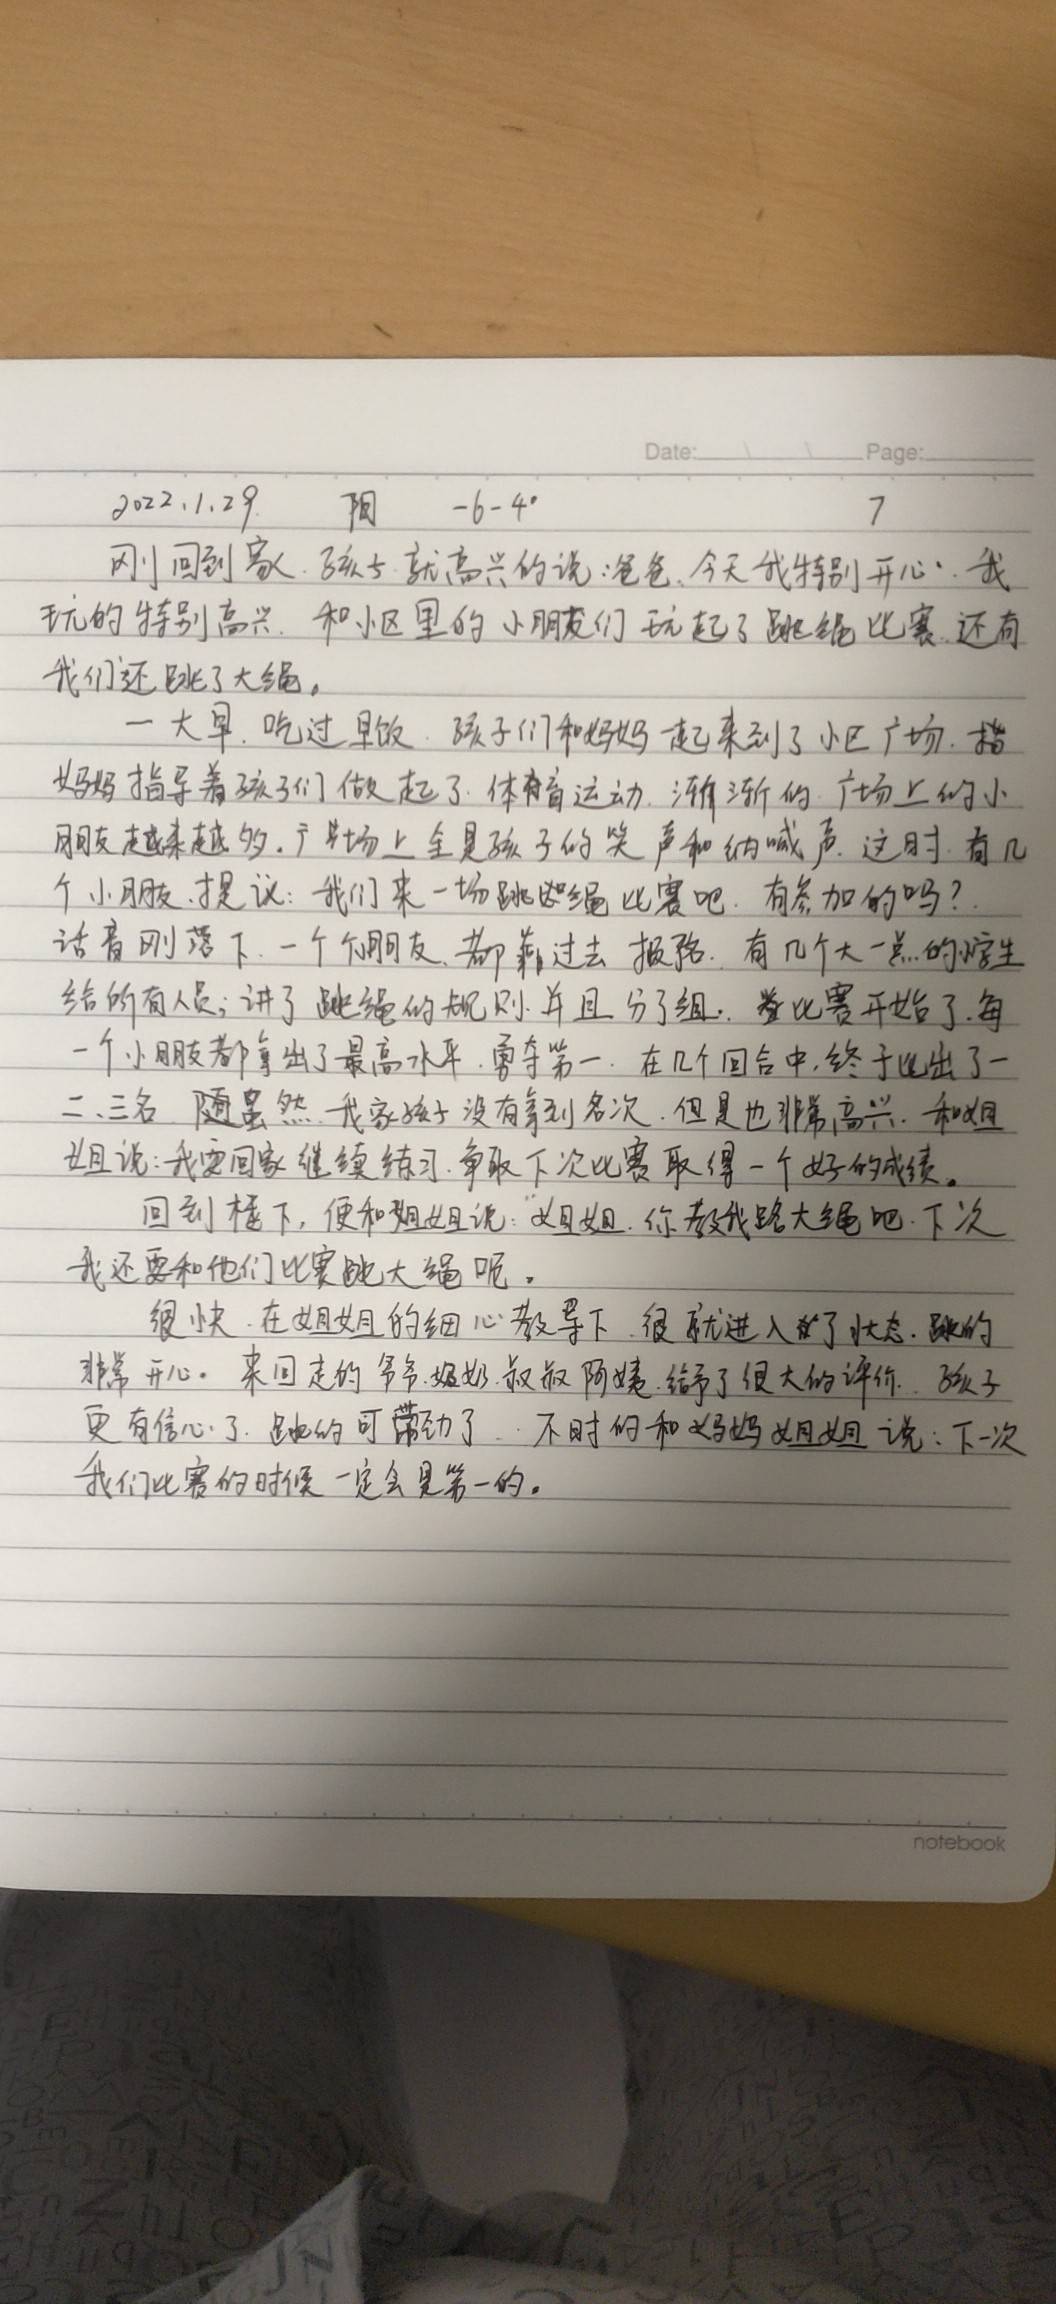 Date: \ \ Page:
2022.1.29. 阳 -6-4° 7
刚回到家.孩子.就高兴的说:爸爸.今天我特别开心.我
玩的特别高兴.和小区里的小朋友们玩起了跳绳比赛.还有
我们还跳了大绳。
一大早.吃过早饭.孩子们和妈妈一起来到了小区广场.
妈妈指导着孩子们做起了.体育运动.渐渐的.广场上的小
朋友越来越多.广场上全是孩子的笑声和呐喊声.这时.有几
个小朋友.提议:我们来一场跳绳比赛吧.有参加的吗?.
话音刚落下.一个个朋友.都 过去报名.有几个大一点的学生
给所有人员;讲了跳绳的规则.并且分了组.比赛开始了.每
一个小朋友都拿出了最高水平.勇夺第一.在几个回合中.终于比出了一
二.三名.虽然.我家孩子没有拿到名次.但是也非常高兴.和姐
姐说:我要回家继续练习.争取下次比赛取得一个好的成绩。
回到楼下,便和姐姐说:"姐姐.你教我跳大绳吧.下次
我还要和他们比赛跳大绳呢。
很快.在姐姐的细心教导下.很就进入了状态.跳的
非常开心。来回走的爷爷.奶奶.叔叔阿姨.给予了很大的评价.孩子
更有信心了.跳的可带劲了..不时的和妈妈姐姐说:下一次
我们比赛的时候一定会是第一的。
notebook